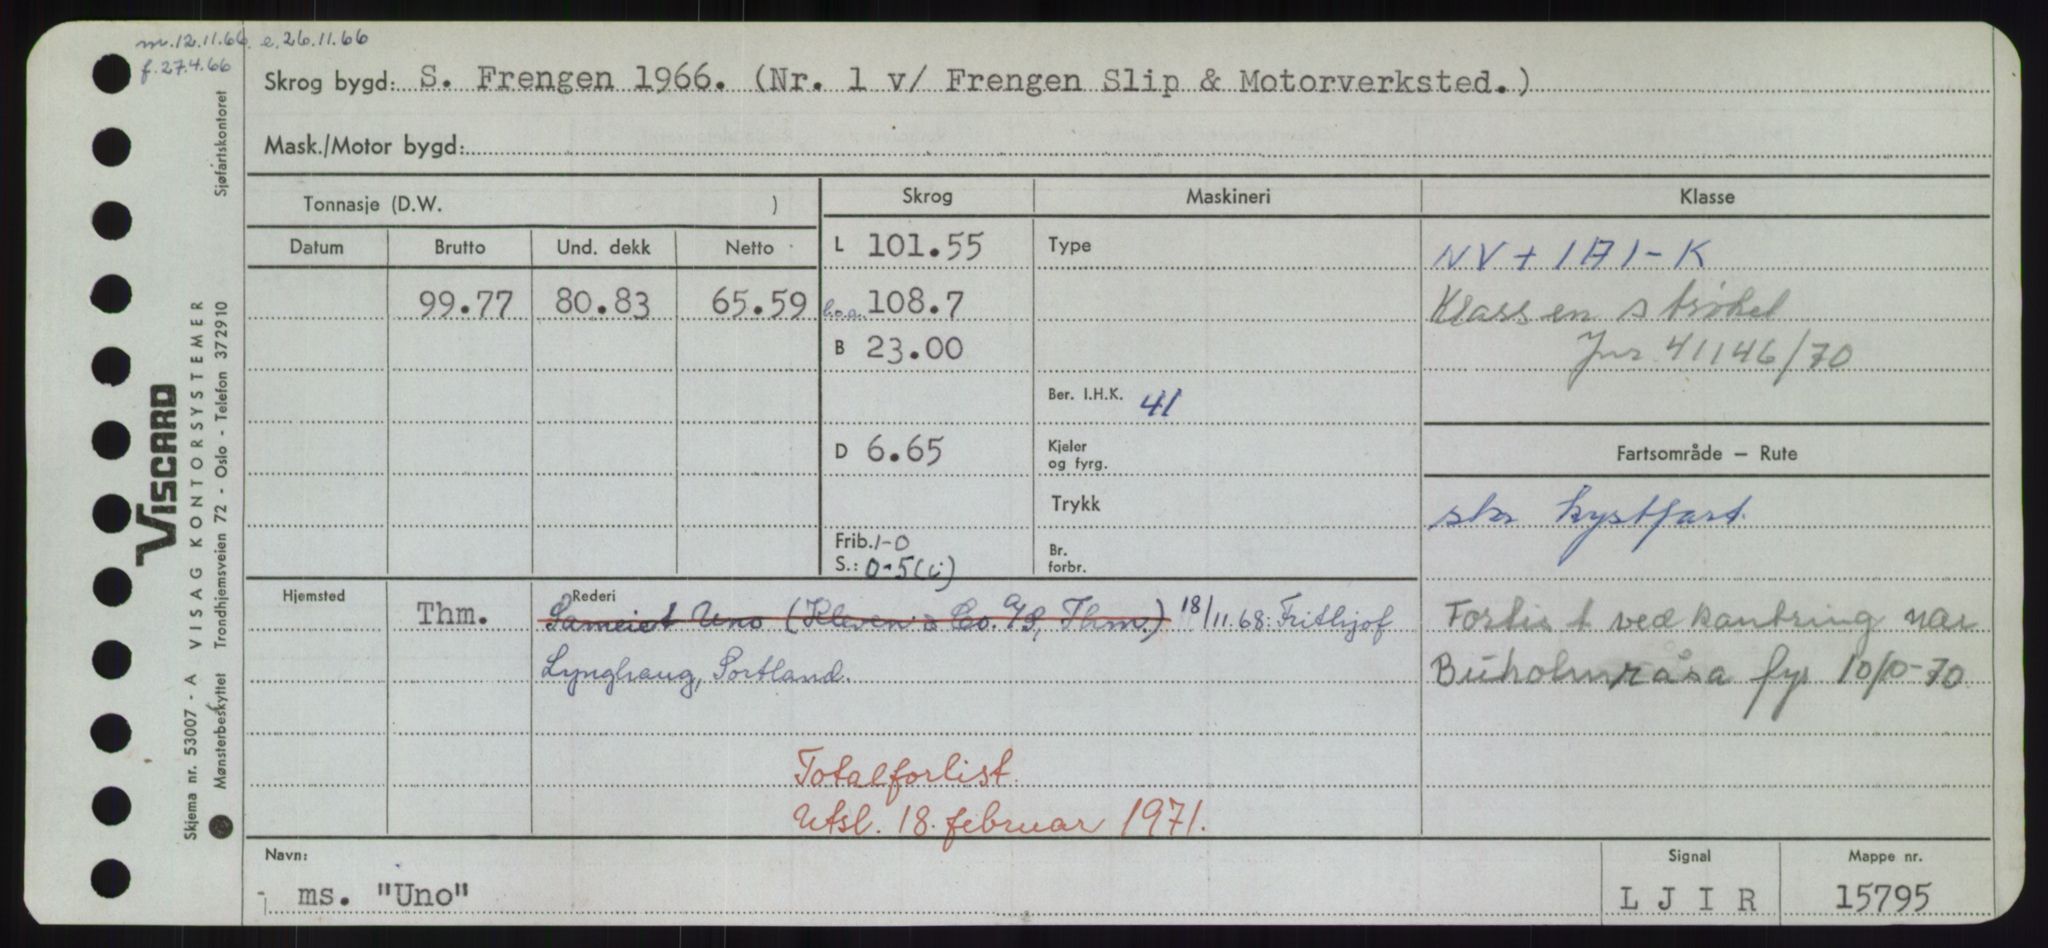 m. 12.11.66. e. 26.11.66
f. 27.4.66
Skrog bygd: S. Frengen 1966. (Nr. 1 v/ Frengen Slip & Motorverksted.)
Mask./Motor bygd:
Tonnasje (D.W. ) Skrog Maskineri Klasse
Datum Brutto Und. dekk Netto L 101.55 Type NV + 1A1-K
99.77 80.83 65.59 l.o.a. 108.7 Klassen strøket
B 23.00 Jnr 41146/70
Ber. I.H.K. 41
D 6.65 Kjeler og fyrg. Fartsområde – Rute
Trykk skr kystfart
Frib. 1-0 Br. forbr.
S.: 0-5(i)
Hjemsted Rederi
Thm. Sameiet Uno (Kleven & Co. A/S, Thm.) 18/11.68: Frithjof Forlist ved kantring nær
Lynghaug, Sortland. Buholmråsa fyr 10/10-70
Totalforlist.
Utsl. 18. februar 1971.
Navn: Signal Mappe nr.
ms. "Uno" L J I R 15795
Sjøfartskontoret
VISCARD
VISAG KONTORSYSTEMER
Trondhjemsveien 72 - Oslo - Telefon 372910
Skjema nr. 53007 - A
Mønsterbeskyttet